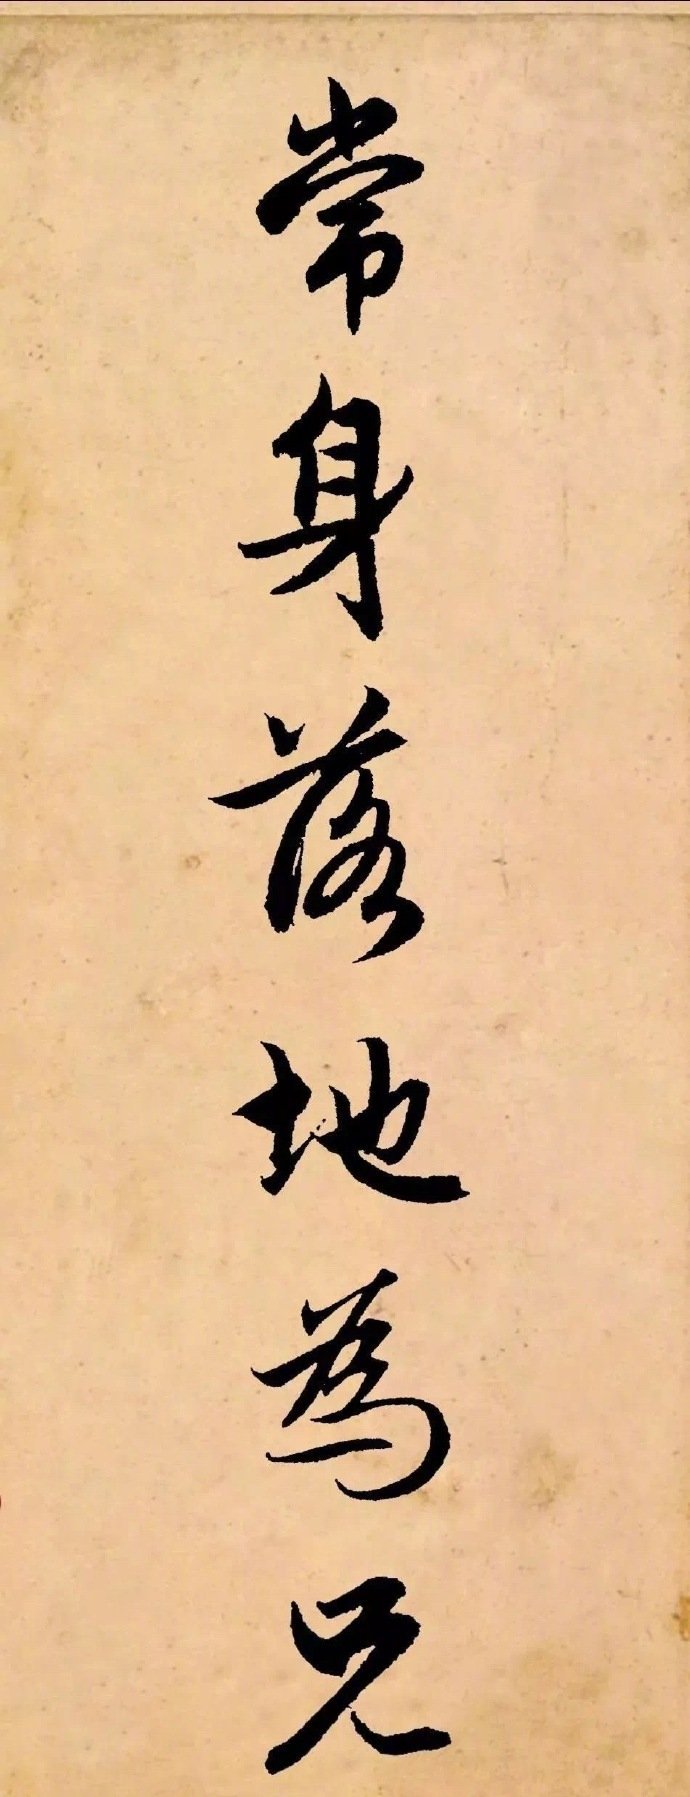 常身落地為兄